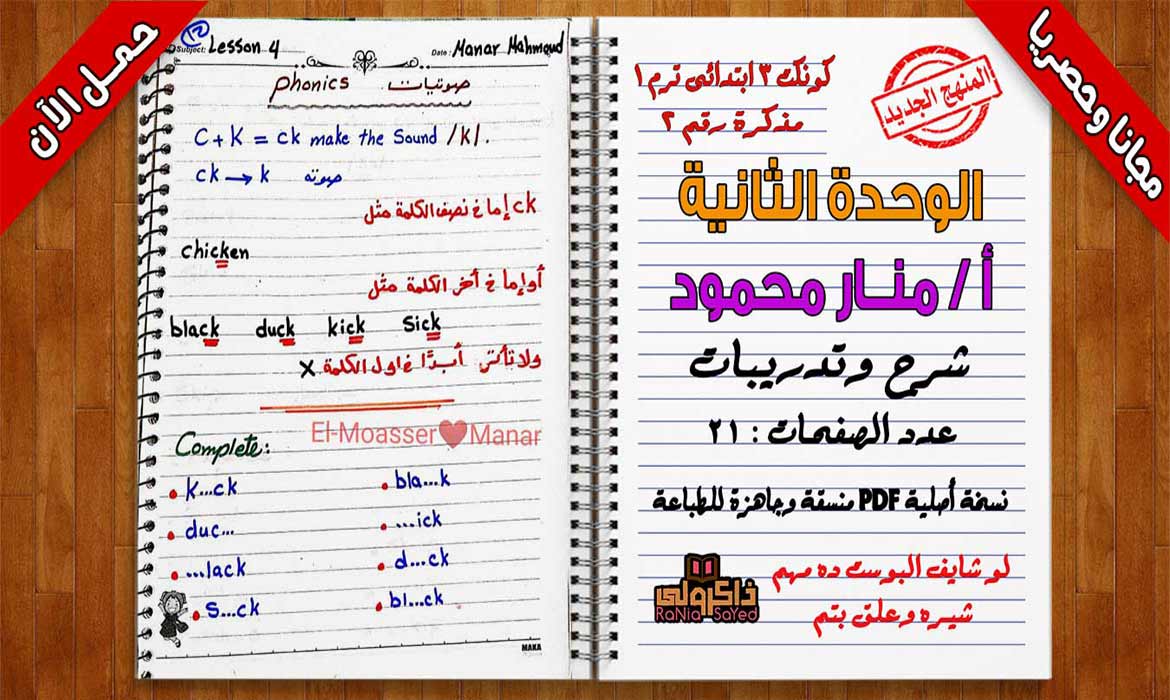 حمل الآن
مجانا وحصريا
12
Subject: Lesson 4
Date: Manar Mahmoud
phonics صوتيات
C + K = ck make the Sound /k/.
ck → k صوته
ck إما في نصف الكلمة مثل
chicken
أو إما في أخر الكلمة مثل
black duck kick Sick
ولا تأتى أبدًا في اول الكلمة X
El-Moasser❤Manar
Complete:
• k...ck • bla...k
• duc... • ...ick
• ...lack • d...ck
• S...ck • bl...ck
MAKA
كونكت ٣ ابتدائى ترم ١
مذكرة رقم ٢
المنهج الجديد
الوحدة الثانية
أ/ منار محمود
شرح وتدريبات
عدد الصفحات : ٢١
نسخة أصلية PDF منسقة وجاهزة للطباعة
لو شايف البوست ده مهم
شيره وعلق بتم
ذاكرولى
RaNia SaYed